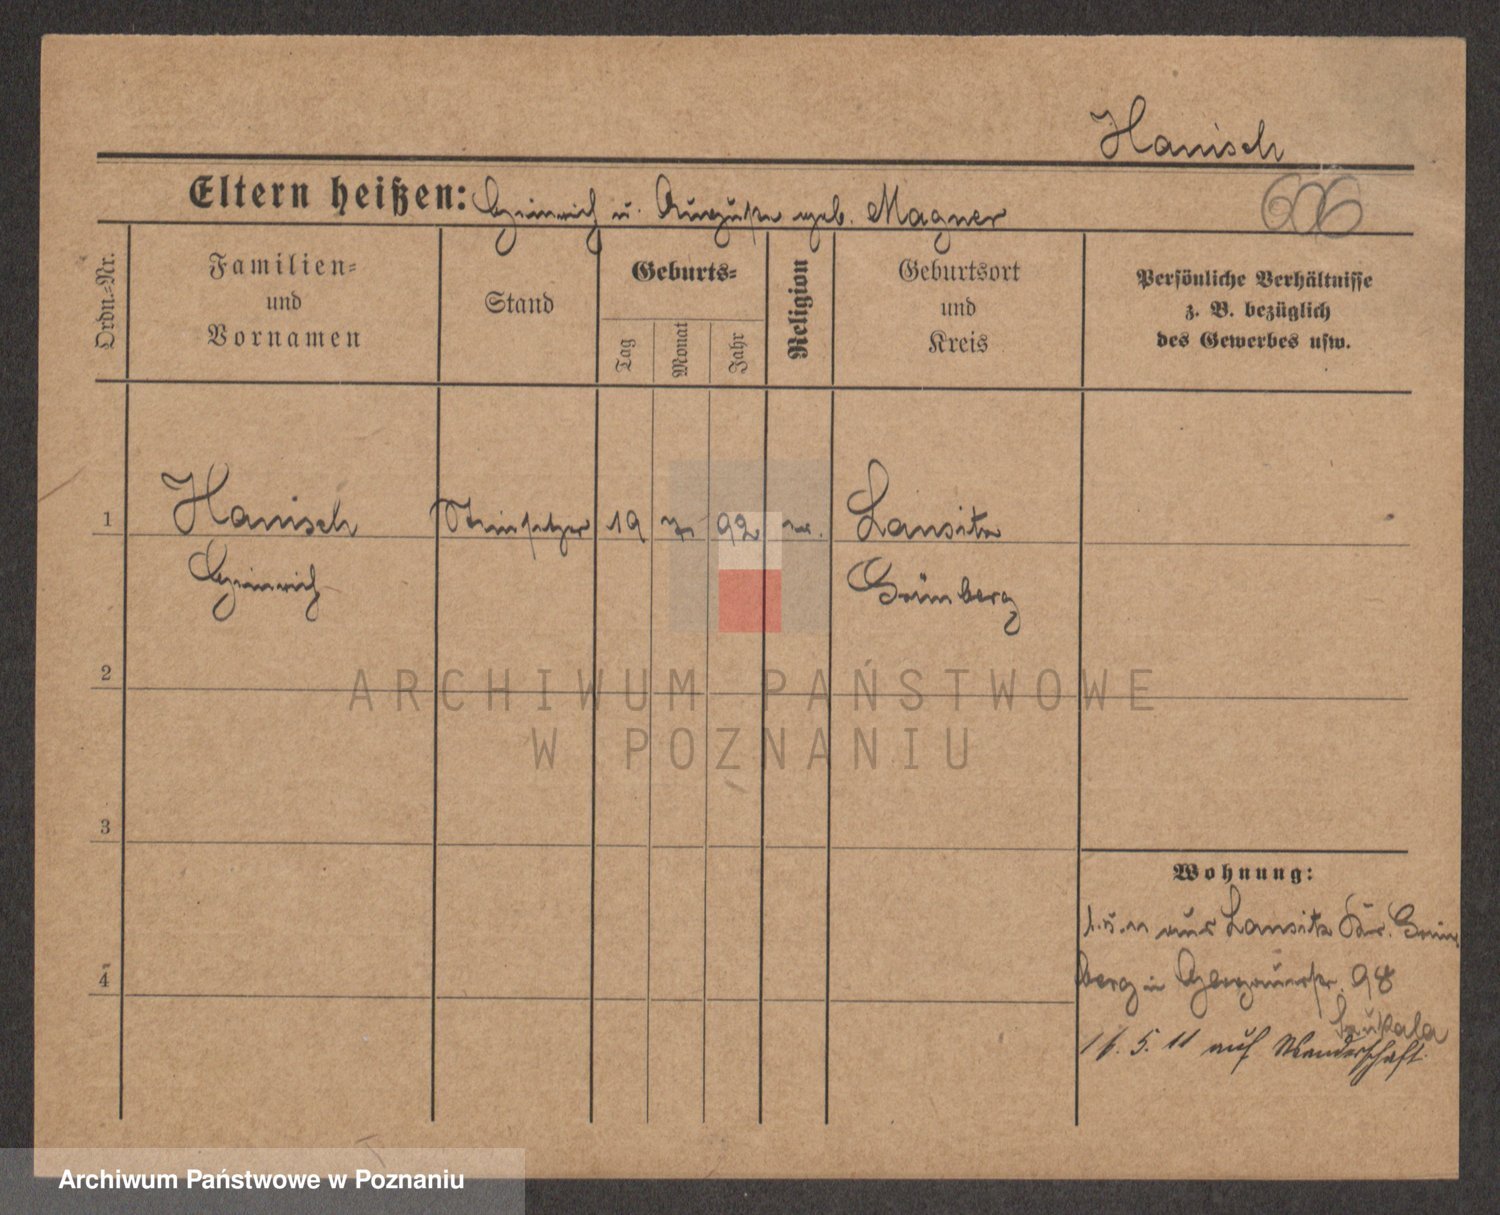 Hanisch
Eltern heißen: Heinrich u. Auguste geb. Magner
606
Ordn.=Nr.
Familien=
und
Vornamen
Stand
Geburts=
Tag
Monat
Jahr
Religion
Geburtsort
und
Kreis
Persönliche Verhältnisse
z. B. bezüglich
des Gewerbes usw.
1
Hanisch
Heinrich
Steinsetzer
19
92
Lansitz
Grünberg
2
ARCHIWUM PAŃSTWOWE
W POZNANIU
3
4
Wohnung:
1.5.11 aus Lansitz Kr. Grün
berg in 98
5. 11 auf Wanderschaft.
Archiwum Państwowe w Poznaniu